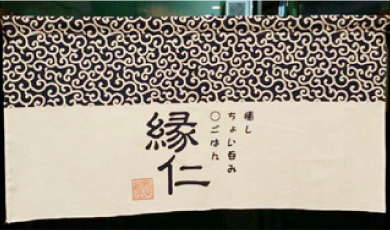 癒し
ちょい呑み
〇ごはん
縁仁